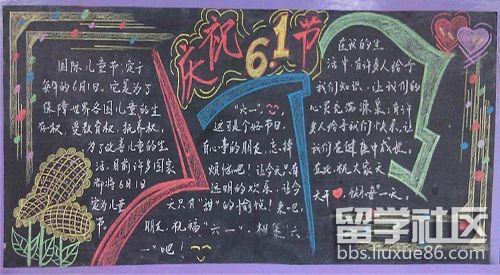 庆祝6.1节
国际儿童节，定于
每年的6月1日。它是为了
保障世界各国儿童的生
存权、受教育权、抚养权，
为了改善儿童的生
活，目前许多国家
都将6月1日
定为儿童
节。
"六一"，
这可是个好节日，
心事的朋友，忘掉
烦恼吧！让今天只有
透明的欢乐，让今
天只有"甜"的愉悦！来吧，
朋友，祝福"六一"，相逢"六
一"吧！
在我的生
活中，有许多人给予
我们知识，让我们的
心灵充满
许多
人给予我们快乐，让
我们在健康中成长。
在此，祝大家天天
开
快乐每一天。
留学社区
bbs.liuxue86.com